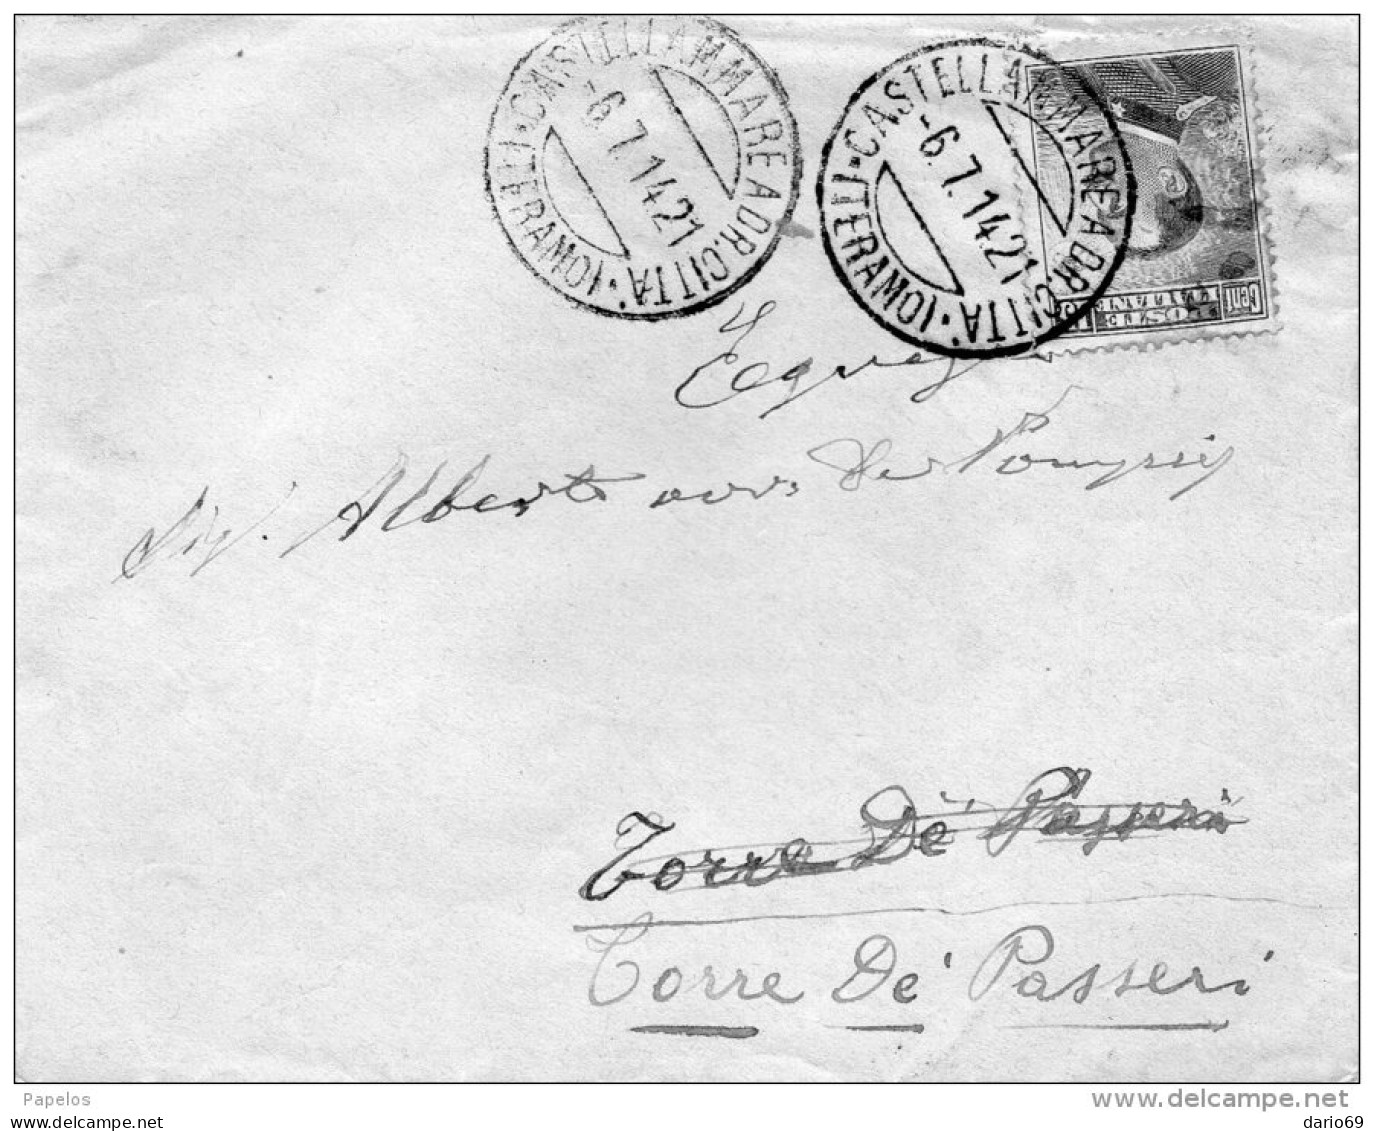 CASTELLAMMARE ADR. CITTÀ · (TERAMO) ·
-6.7.14.21
CASTELLAMMARE ADR. CITTÀ · (TERAMO) ·
-6.7.14.21
Cent
Sig. Alberto
Torre De' Passeri
Torre De' Passeri
Papelos
www.delcampe.net
www.delcampe.net
dario69